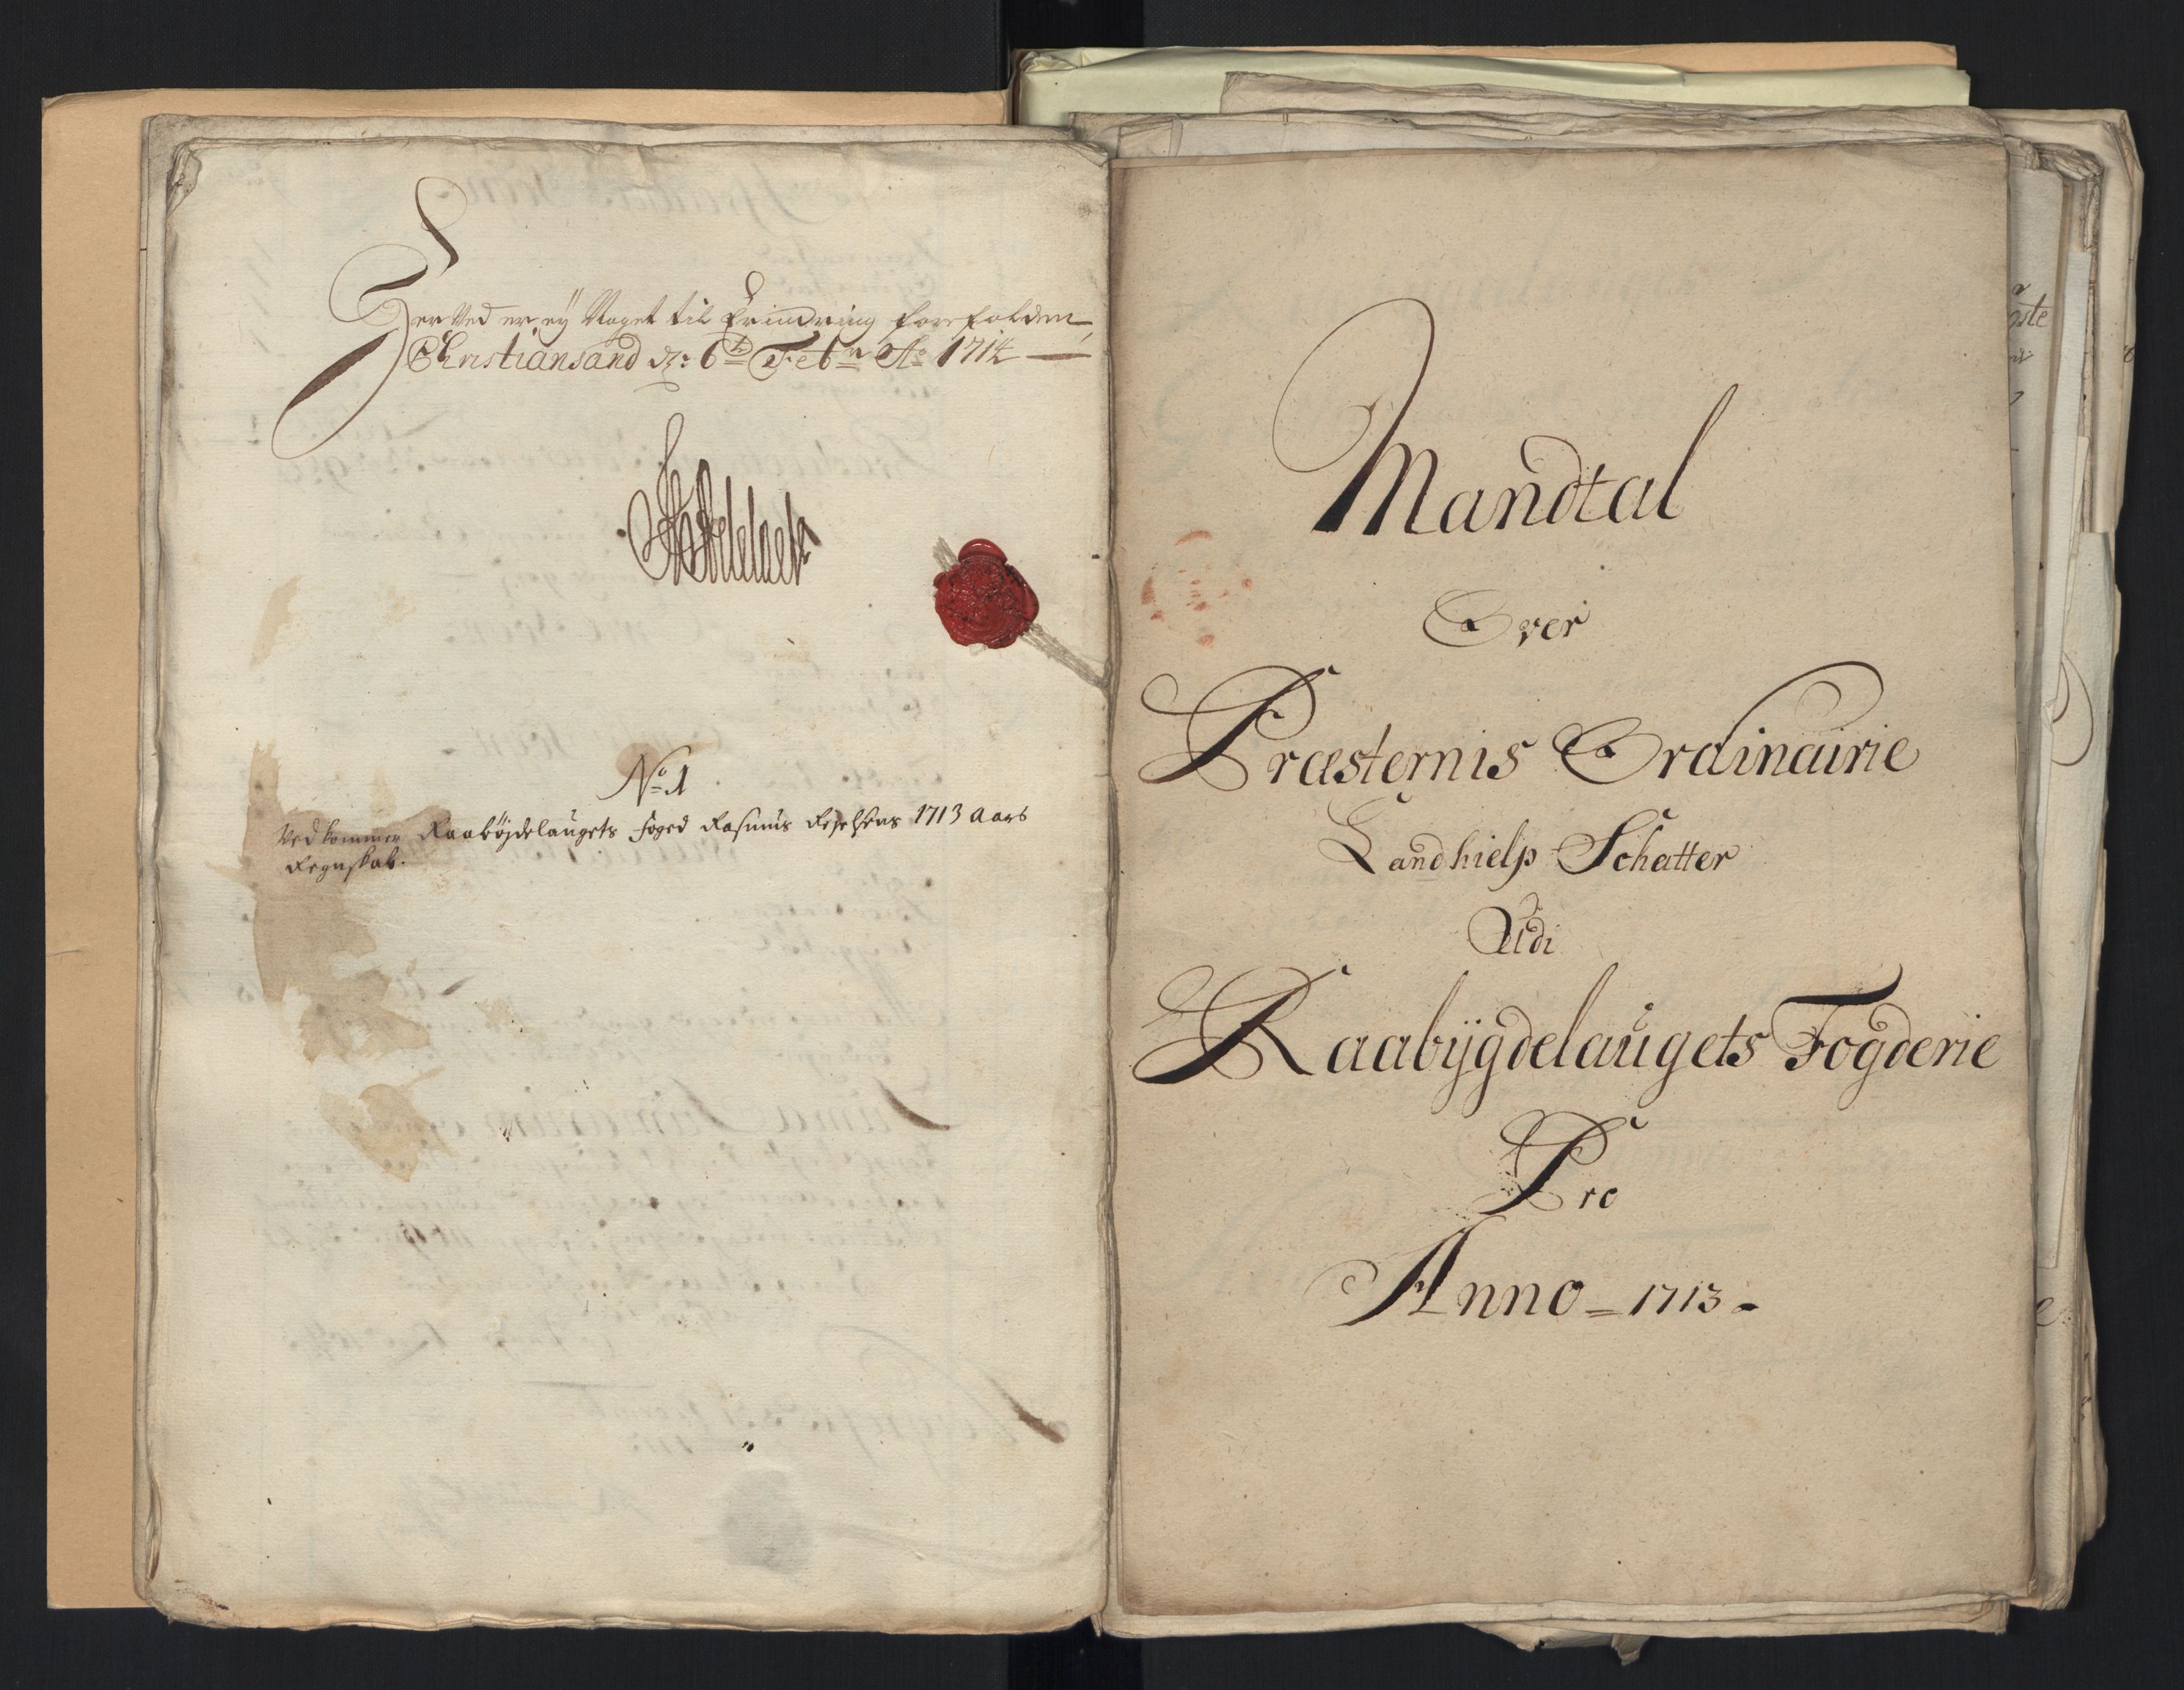 Her Ved er ey Noget til Erindring forefalden,
Christiansand d: 6te Febr Ao 1714
No 1
Vedkommer Raabøjdelaugets foged Rasmus 1713 Aars
Regnskab.
Mandtal
Over
Præsternis Ordinairie
Landhielp Schatter
Udi
Raabygdelaugets Fogderie
Pro
Anno 1713